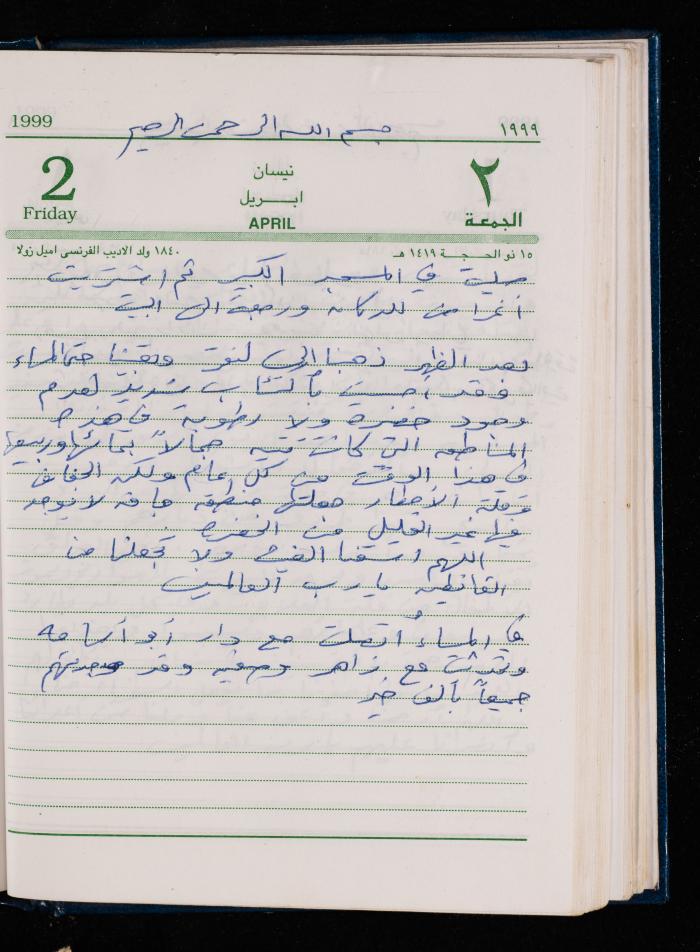 1999
بسم الله الرحمن الرحيم
١٩٩٩
2
Friday
نيسان
ابريل
APRIL
٢
الجمعة
١٥ ذو الحجة ١٤١٩ هـ
١٨٤٠ ولد الاديب الفرنسي اميل زولا
صليت في المسجد الكبير ثم اشتريت
أغراض للدكان ورجعت الى البيت
بعد الظهر ذهبنا إلى وبقينا حتى المساء
وقد أحسست باكتئاب شديد لعدم
وجود خضرة ولا رطوبة في هذه
المناطق التي كانت جمالاً بمائها وربيعها
في هذا الوقت من كل عام ولكن الجفاف
وقلة الأمطار جعلتها منطقة جافة لا يوجد
فيها غير القليل من الخضرة
اللهم اسقنا الغيث ولا تجعلنا من
القانطين يا رب العالمين
في المساء اتصلت مع دار أبو أسامة
وتحدثت مع زاهر وصفية وقد وجدتهم
جميعاً بألف خير